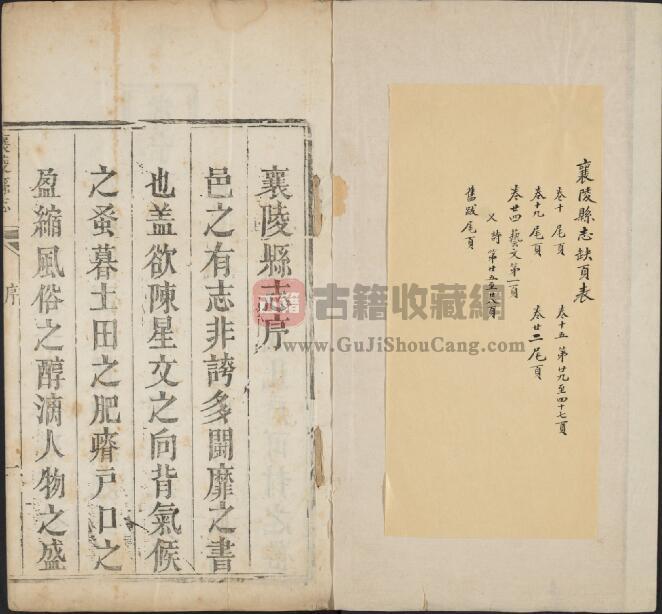 襄陵縣志缺頁表
卷十 尾頁
卷十五 第廿九至四十七頁
卷十九 尾頁
卷廿二 尾頁
卷廿四 藝文第一頁
又 詩 第廿五至廿八頁
舊跋尾頁
襄陵縣志序
邑之有志非誇多鬪靡之書
也盖欲陳星文之向背氣候
之蚤暮土田之肥瘠戸口之
盈縮風俗之醇漓人物之盛
襄陵縣志
序
一
古籍
古籍收藏網
www.GuJiShouCang.com